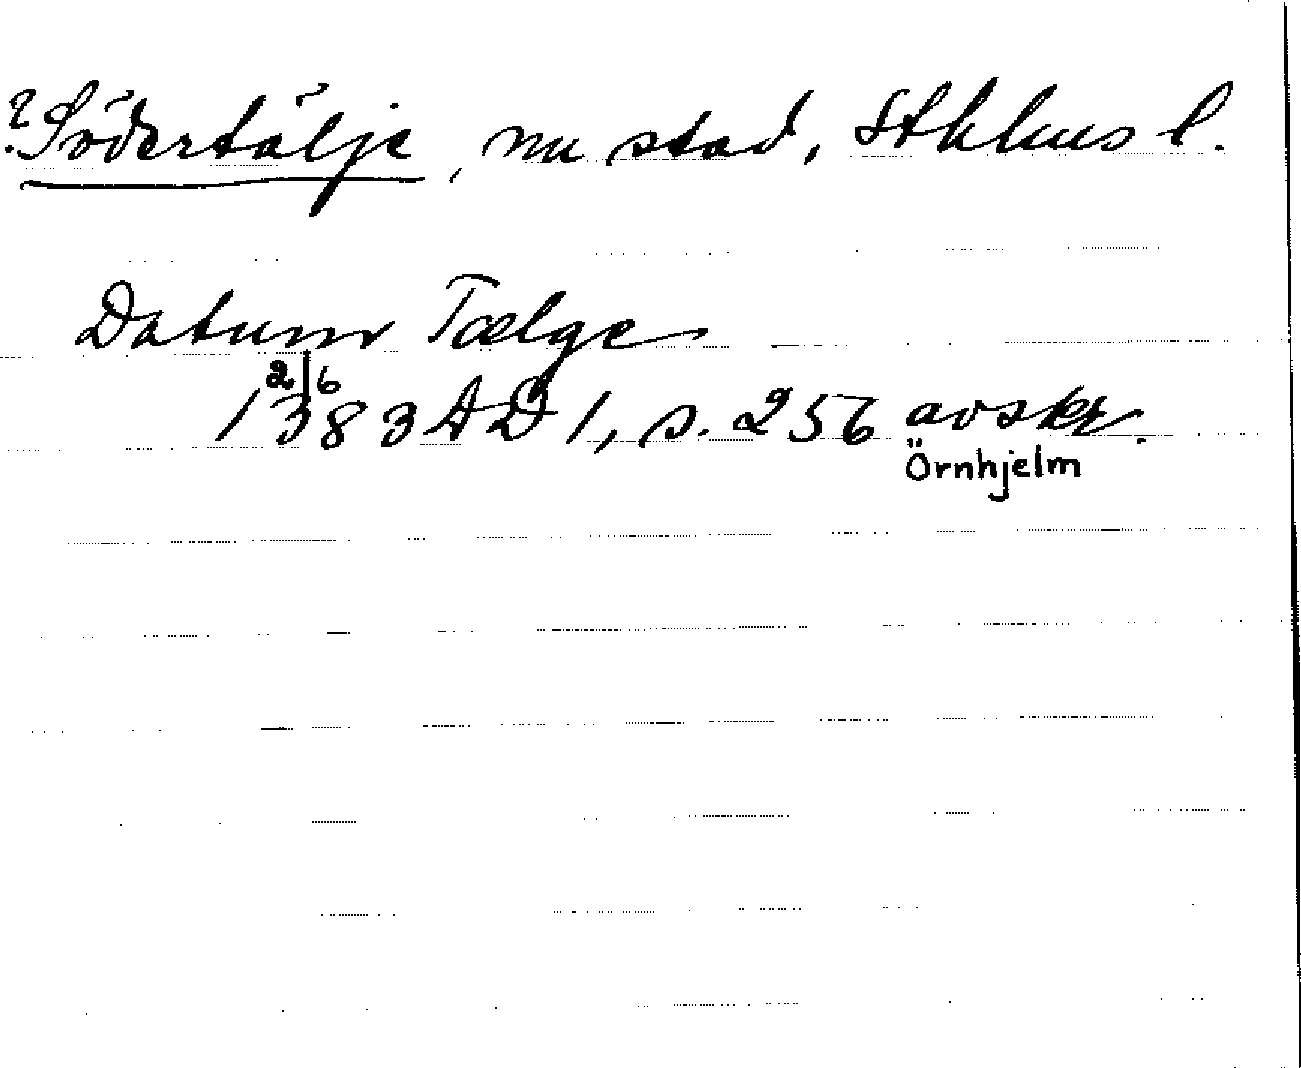 ? Södertälje, nu stad, Sthlms l.
Datum Tælge
2/6
1383 AD 1, s. 256 avskr.
Örnhjelm